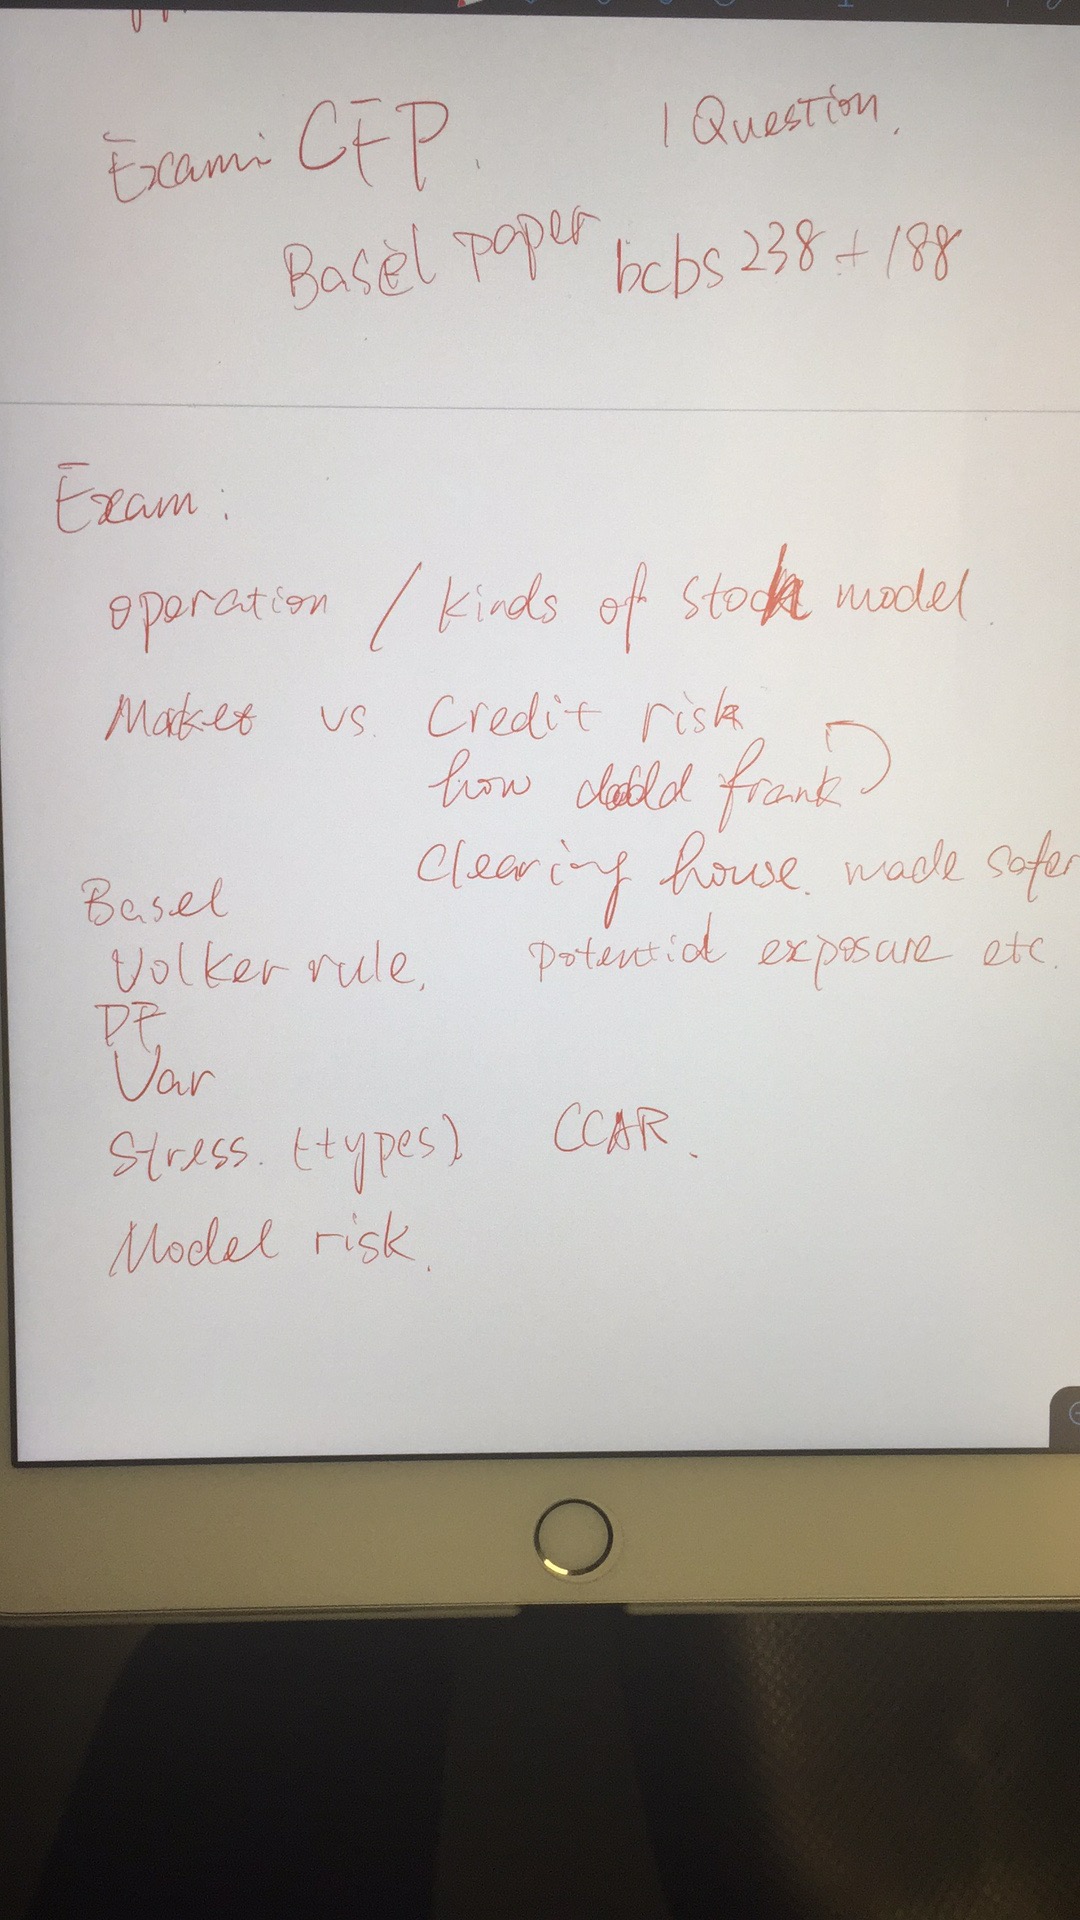 Exam: CFP. 1 Question.
Basel paper bcbs 238 + 188
Exam:
operation / kinds of stock model.
Market vs. Credit risk
how dodd frank
Clearing house. made safer
Basel
Volker rule. potential exposure etc.
DF
Var
Stress. (types) CCAR.
Model risk.